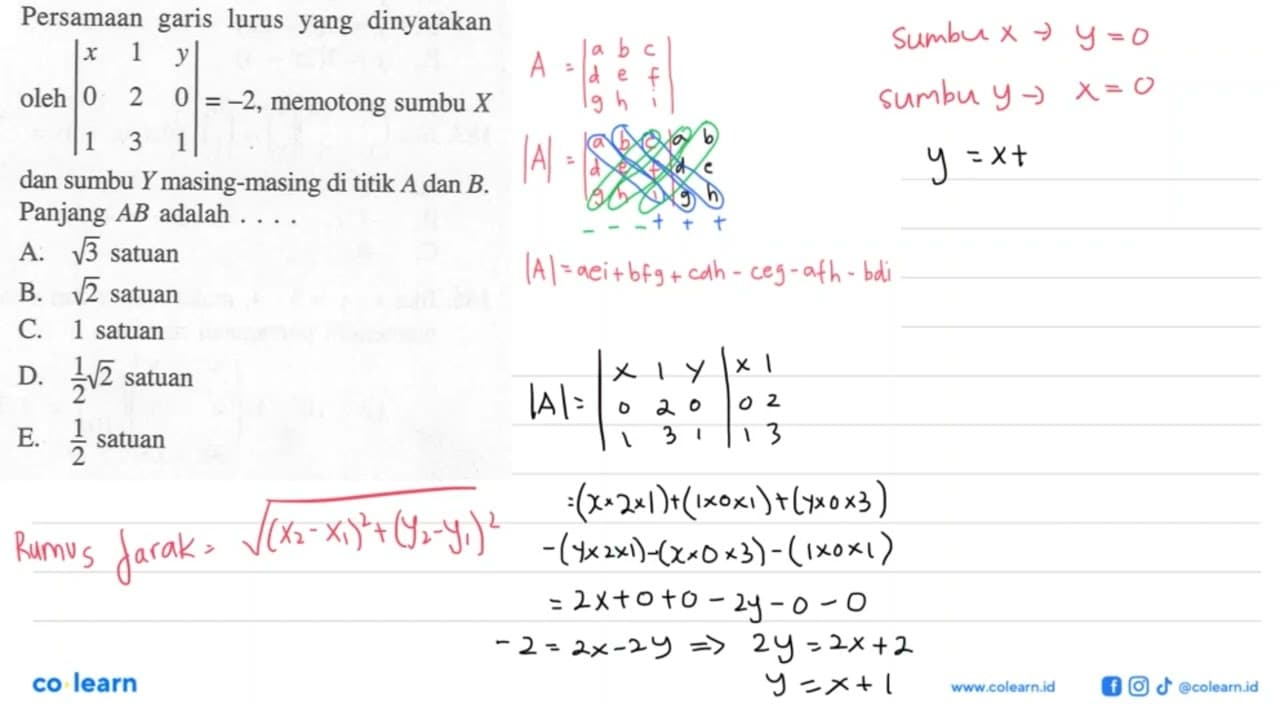 Persamaan garis lurus yang dinyatakan
oleh |x 1 y|
|0 2 0| = -2, memotong sumbu X
|1 3 1|
dan sumbu Y masing-masing di titik A dan B.
Panjang AB adalah . . . .
A. √3 satuan
B. √2 satuan
C. 1 satuan
D. 1/2 √2 satuan
E. 1/2 satuan
Rumus Jarak = √(x₂-x₁)²+(y₂-y₁)²
A = |a b c|
|d e f|
|g h i|
|A| = |a b c| a b
|d e f| d e
|g h i| g h
- - - + + +
|A| = aei + bfg + cdh - ceg - afh - bdi
|A| = |x 1 y| x 1
|0 2 0| 0 2
|1 3 1| 1 3
=(x×2×1)+(1×0×1)+(y×0×3)
-(y×2×1)-(x×0×3)-(1×0×1)
= 2x+0+0-2y-0-0
-2 = 2x-2y ⇒ 2y = 2x+2
y = x+1
Sumbu x → y = 0
sumbu y → x = 0
y = x+
co learn
www.colearn.id
@colearn.id